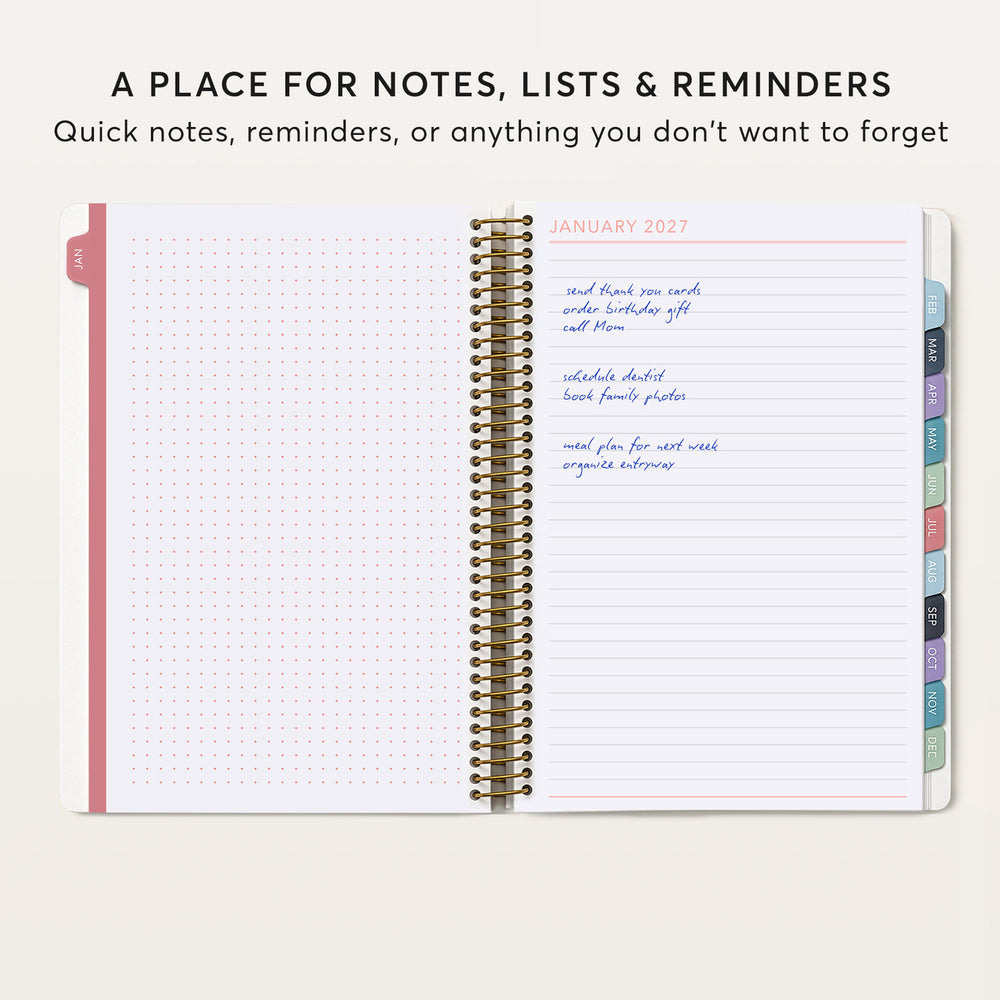 A PLACE FOR NOTES, LISTS & REMINDERS
Quick notes, reminders, or anything you don't want to forget
JAN
JANUARY 2027
send thank you cards
order birthday gift
call Mom
schedule dentist
book family photos
meal plan for next week
organize entryway
FEB
MAR
APR
MAY
JUN
JUL
AUG
SEP
OCT
NOV
DEC